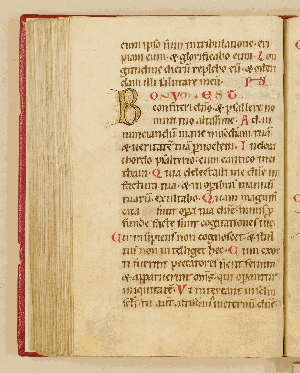 cum ipso sum in tribulatione eri
piam eum & glorificabo eum. Lon
gitudine dierum replebo eu & osten
dam illi salutare meu. PS
BONUM EST
confiteri dno & psallere no
mini tuo altissime. Ad an
nunciandu mane mia tua
& veritate tua p noctem. In deca
chordo psalterio cum cantico in ci
thara. Quia delectasti me dne in
factura tua & in operibus manuu
tuaru exultabo. Quam magnifi
cata sunt opera tua dne nimis p
funde facte sunt cogitationes tue
Uir insipiens non cognoscet & stul
tus non intelliget hec. Cum exor
ti fuerint peccatores sicut fenum
& apparuerint oms qui operantur
iniquitate. Ut intereant in sclm
scli tu aut altissimus in eternu dne